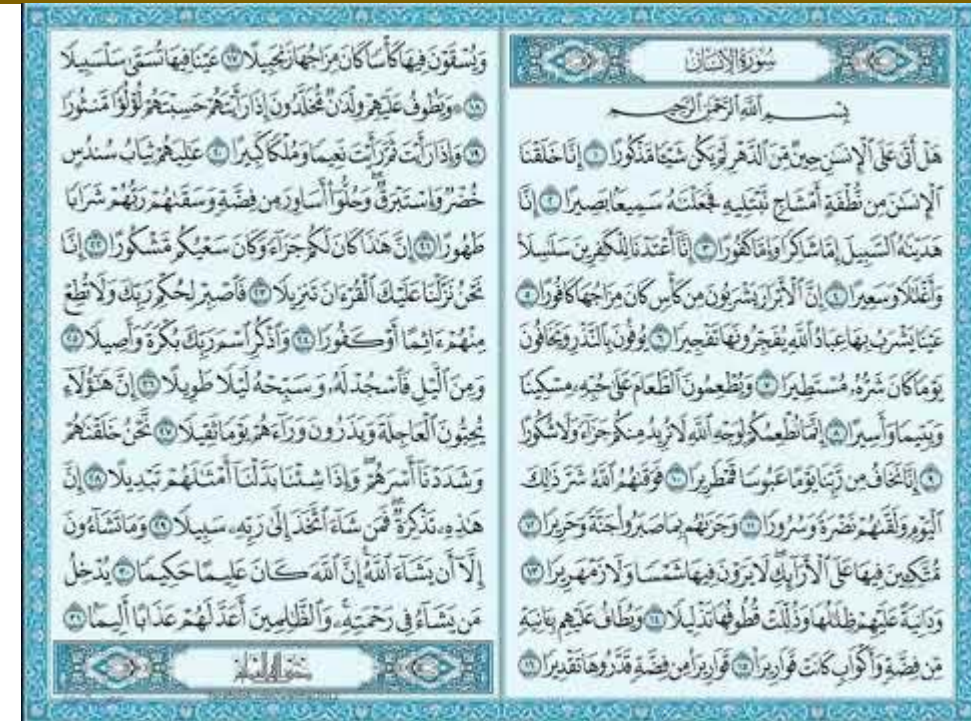 سُورَةُ الْإِنسَانِ
بِسْمِ اللَّهِ الرَّحْمَٰنِ الرَّحِيمِ
هَلْ أَتَىٰ عَلَى الْإِنسَٰنِ حِينٌ مِّنَ الدَّهْرِ لَمْ يَكُن شَيْـًٔا مَّذْكُورًا ١ إِنَّا خَلَقْنَا
الْإِنسَٰنَ مِن نُّطْفَةٍ أَمْشَاجٍ نَّبْتَلِيهِ فَجَعَلْنَٰهُ سَمِيعًۢا بَصِيرًا ٢ إِنَّا
هَدَيْنَٰهُ السَّبِيلَ إِمَّا شَاكِرًا وَإِمَّا كَفُورًا ٣ إِنَّآ أَعْتَدْنَا لِلْكَٰفِرِينَ سَلَٰسِلَا۟
وَأَغْلَٰلًا وَسَعِيرًا ٤ إِنَّ الْأَبْرَارَ يَشْرَبُونَ مِن كَأْسٍ كَانَ مِزَاجُهَا كَافُورًا ٥
عَيْنًا يَشْرَبُ بِهَا عِبَادُ اللَّهِ يُفَجِّرُونَهَا تَفْجِيرًا ٦ يُوفُونَ بِالنَّذْرِ وَيَخَافُونَ
يَوْمًا كَانَ شَرُّهُۥ مُسْتَطِيرًا ٧ وَيُطْعِمُونَ الطَّعَامَ عَلَىٰ حُبِّهِۦ مِسْكِينًا
وَيَتِيمًا وَأَسِيرًا ٨ إِنَّمَا نُطْعِمُكُمْ لِوَجْهِ اللَّهِ لَا نُرِيدُ مِنكُمْ جَزَآءً وَلَا شُكُورًا
٩ إِنَّا نَخَافُ مِن رَّبِّنَا يَوْمًا عَبُوسًا قَمْطَرِيرًا ١٠ فَوَقَىٰهُمُ اللَّهُ شَرَّ ذَٰلِكَ
الْيَوْمِ وَلَقَّىٰهُمْ نَضْرَةً وَسُرُورًا ١١ وَجَزَىٰهُم بِمَا صَبَرُوا۟ جَنَّةً وَحَرِيرًا ١٢
مُّتَّكِـِٔينَ فِيهَا عَلَى الْأَرَآئِكِ ۖ لَا يَرَوْنَ فِيهَا شَمْسًا وَلَا زَمْهَرِيرًا ١٣
وَدَانِيَةً عَلَيْهِمْ ظِلَٰلُهَا وَذُلِّلَتْ قُطُوفُهَا تَذْلِيلًا ١٤ وَيُطَافُ عَلَيْهِم بِـَٔانِيَةٍ
مِّن فِضَّةٍ وَأَكْوَابٍ كَانَتْ قَوَارِيرَا۠ ١٥ قَوَارِيرَا۟ مِن فِضَّةٍ قَدَّرُوهَا تَقْدِيرًا ١٦
وَيُسْقَوْنَ فِيهَا كَأْسًا كَانَ مِزَاجُهَا زَنجَبِيلًا ١٧ عَيْنًا فِيهَا تُسَمَّىٰ سَلْسَبِيلًا
١٨ ۞ وَيَطُوفُ عَلَيْهِمْ وِلْدَٰنٌ مُّخَلَّدُونَ إِذَا رَأَيْتَهُمْ حَسِبْتَهُمْ لُؤْلُؤًا مَّنثُورًا
١٩ وَإِذَا رَأَيْتَ ثَمَّ رَأَيْتَ نَعِيمًا وَمُلْكًا كَبِيرًا ٢٠ عَٰلِيَهُمْ ثِيَابُ سُندُسٍ
خُضْرٌ وَإِسْتَبْرَقٌ ۖ وَحُلُّوٓا۟ أَسَاوِرَ مِن فِضَّةٍ وَسَقَىٰهُمْ رَبُّهُمْ شَرَابًا
طَهُورًا ٢١ إِنَّ هَٰذَا كَانَ لَكُمْ جَزَآءً وَكَانَ سَعْيُكُم مَّشْكُورًا ٢٢ إِنَّا
نَحْنُ نَزَّلْنَا عَلَيْكَ الْقُرْءَانَ تَنزِيلًا ٢٣ فَاصْبِرْ لِحُكْمِ رَبِّكَ وَلَا تُطِعْ
مِنْهُمْ ءَاثِمًا أَوْ كَفُورًا ٢٤ وَاذْكُرِ اسْمَ رَبِّكَ بُكْرَةً وَأَصِيلًا ٢٥
وَمِنَ الَّيْلِ فَاسْجُدْ لَهُۥ وَسَبِّحْهُ لَيْلًا طَوِيلًا ٢٦ إِنَّ هَٰٓؤُلَآءِ
يُحِبُّونَ الْعَاجِلَةَ وَيَذَرُونَ وَرَآءَهُمْ يَوْمًا ثَقِيلًا ٢٧ نَّحْنُ خَلَقْنَٰهُمْ
وَشَدَدْنَآ أَسْرَهُمْ ۖ وَإِذَا شِئْنَا بَدَّلْنَآ أَمْثَٰلَهُمْ تَبْدِيلًا ٢٨ إِنَّ
هَٰذِهِۦ تَذْكِرَةٌ ۖ فَمَن شَآءَ اتَّخَذَ إِلَىٰ رَبِّهِۦ سَبِيلًا ٢٩ وَمَا تَشَآءُونَ
إِلَّآ أَن يَشَآءَ اللَّهُ ۚ إِنَّ اللَّهَ كَانَ عَلِيمًا حَكِيمًا ٣٠ يُدْخِلُ
مَن يَشَآءُ فِى رَحْمَتِهِۦ ۚ وَالظَّٰلِمِينَ أَعَدَّ لَهُمْ عَذَابًا أَلِيمًۢا ٣١